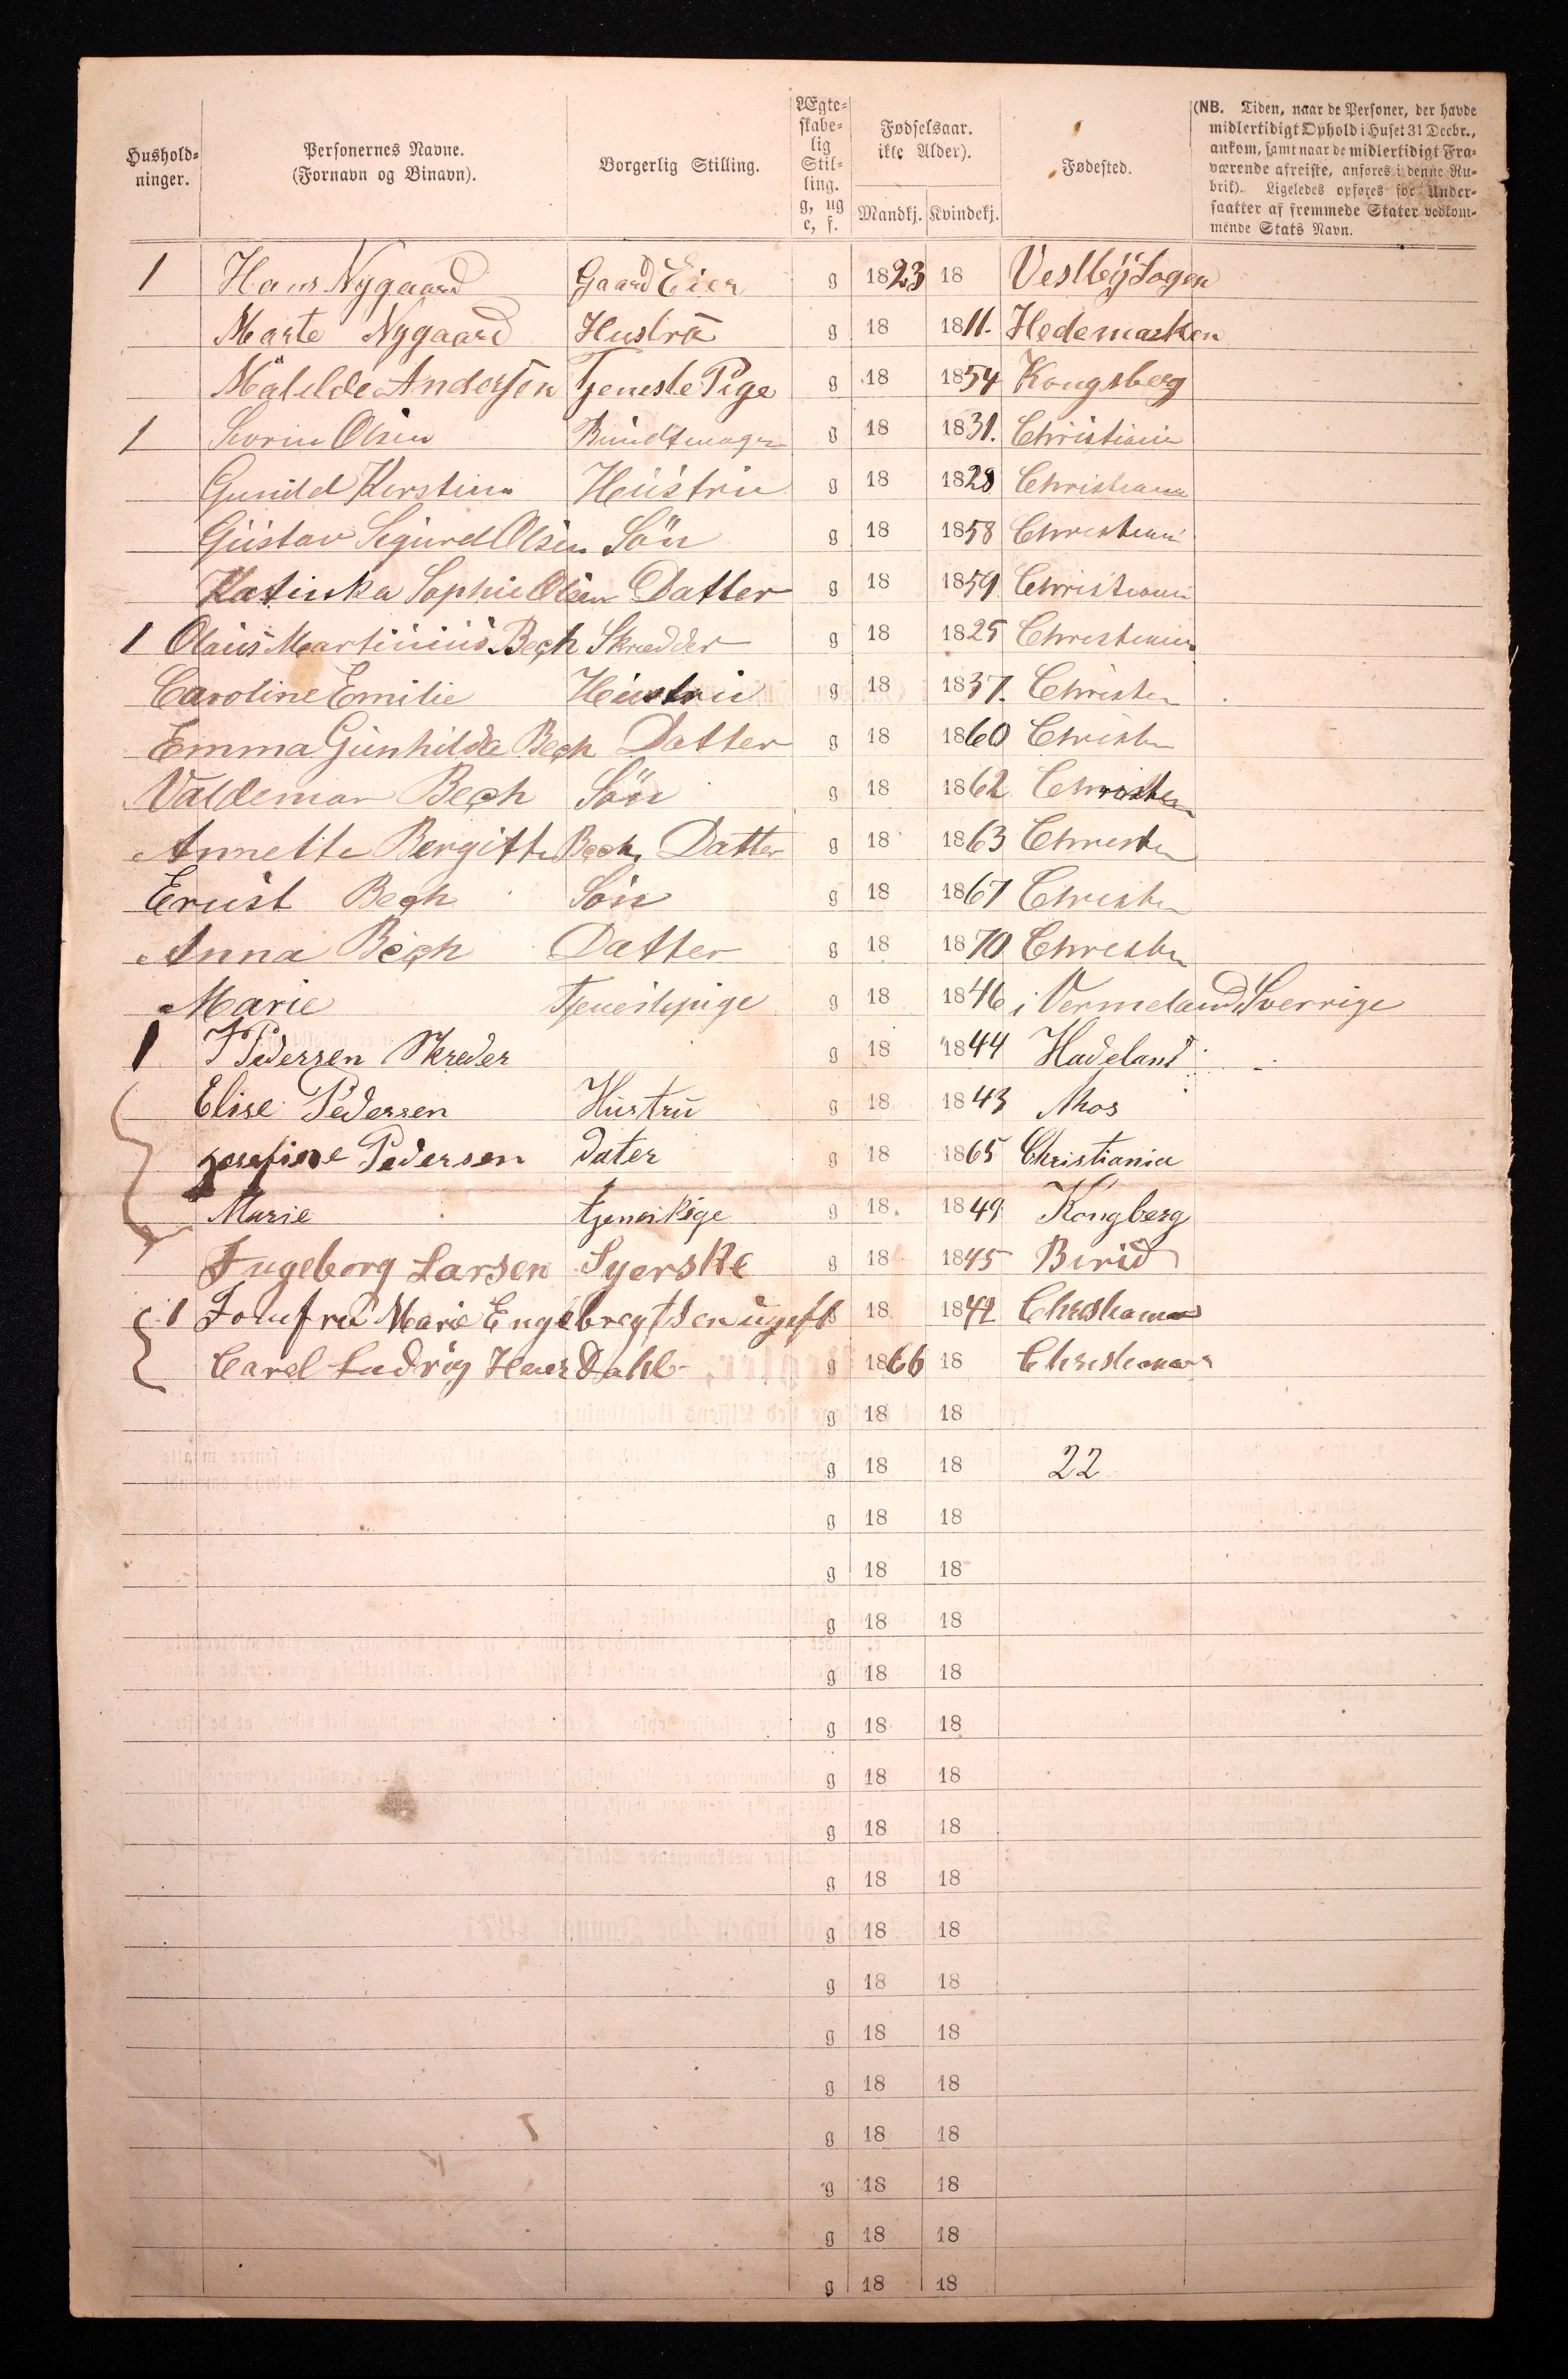 Hushold-
ninger.
Personernes Navne.
(Fornavn og Binavn).
Borgerlig Stilling.
Ægte-
skabe-
lig
Stil-
ling.
g, ug
e, f.
Fødselsaar.
ikke Alder).
Mandkj. Kvindekj.
Fødested.
(NB. Tiden, naar de Personer, der havde
midlertidigt Ophold i Huset 31 Decbr.,
ankom, samt naar de midlertidigt Fra-
værende afreiste, anføres i denne Ru-
brik). Ligeledes opføres for Under-
saatter af fremmede Stater vedkom-
mende Stats Navn.
1 Hans Nygaard Gaard Eier g 1823 18 Vestby Sogn
Marte Nygaard Hustru g 18 1811. Hedemarken
Matilde Andersen Tjeneste Pige g 18 1854 Kongsberg
1 Olsen Bundtmager g 18 1831. Christiania
Gunild Kirstine Hustru g 18 1828 Christiania
Gustav Sigurd Olsen Søn g 18 1858 Christiania
Katinka Sophie Olsen Datter g 18 1859 Christiania
1 Olaus Martinius Bech Skrædder g 18 1825 Christiania
Caroline Emilie Hustru g 18 1837. Christn
Emma Gunhilda Bech Datter g 18 1860 Christn
Valdemar Bech Søn g 18 1862 Christn
Annette Bergitte Bech Datter g 18 1863 Christn
Ernst Bech Søn g 18 1867 Christn
Anna Bech Datter g 18 1870 Christn
Marie Tjenestepige g 18 1846 i Vermeland Sverrige
1 Pedersen Skreder g 18 1844 Hadeland
Elise Pedersen Hustru g 18 1843 Mos
Josefine Pedersen Dater g 18 1865 Christiania
Marie g 18 1849 Kongberg
Ingeborg Larsen Syerske g 18 1845 Birid
1 Jomfru Marie Engebregtsen ugift 18 1842 Christiania
Carel Ludvig Dahl g 1866 18 Christiania
g 18 18
g 18 18 22
g 18 18
g 18 18
g 18 18
g 18 18
g 18 18
g 18 18
g 18 18
g 18 18
g 18 18
g 18 18
g 18 18
g 18 18
g 18 18
g 18 18
g 18 18
g 18 18